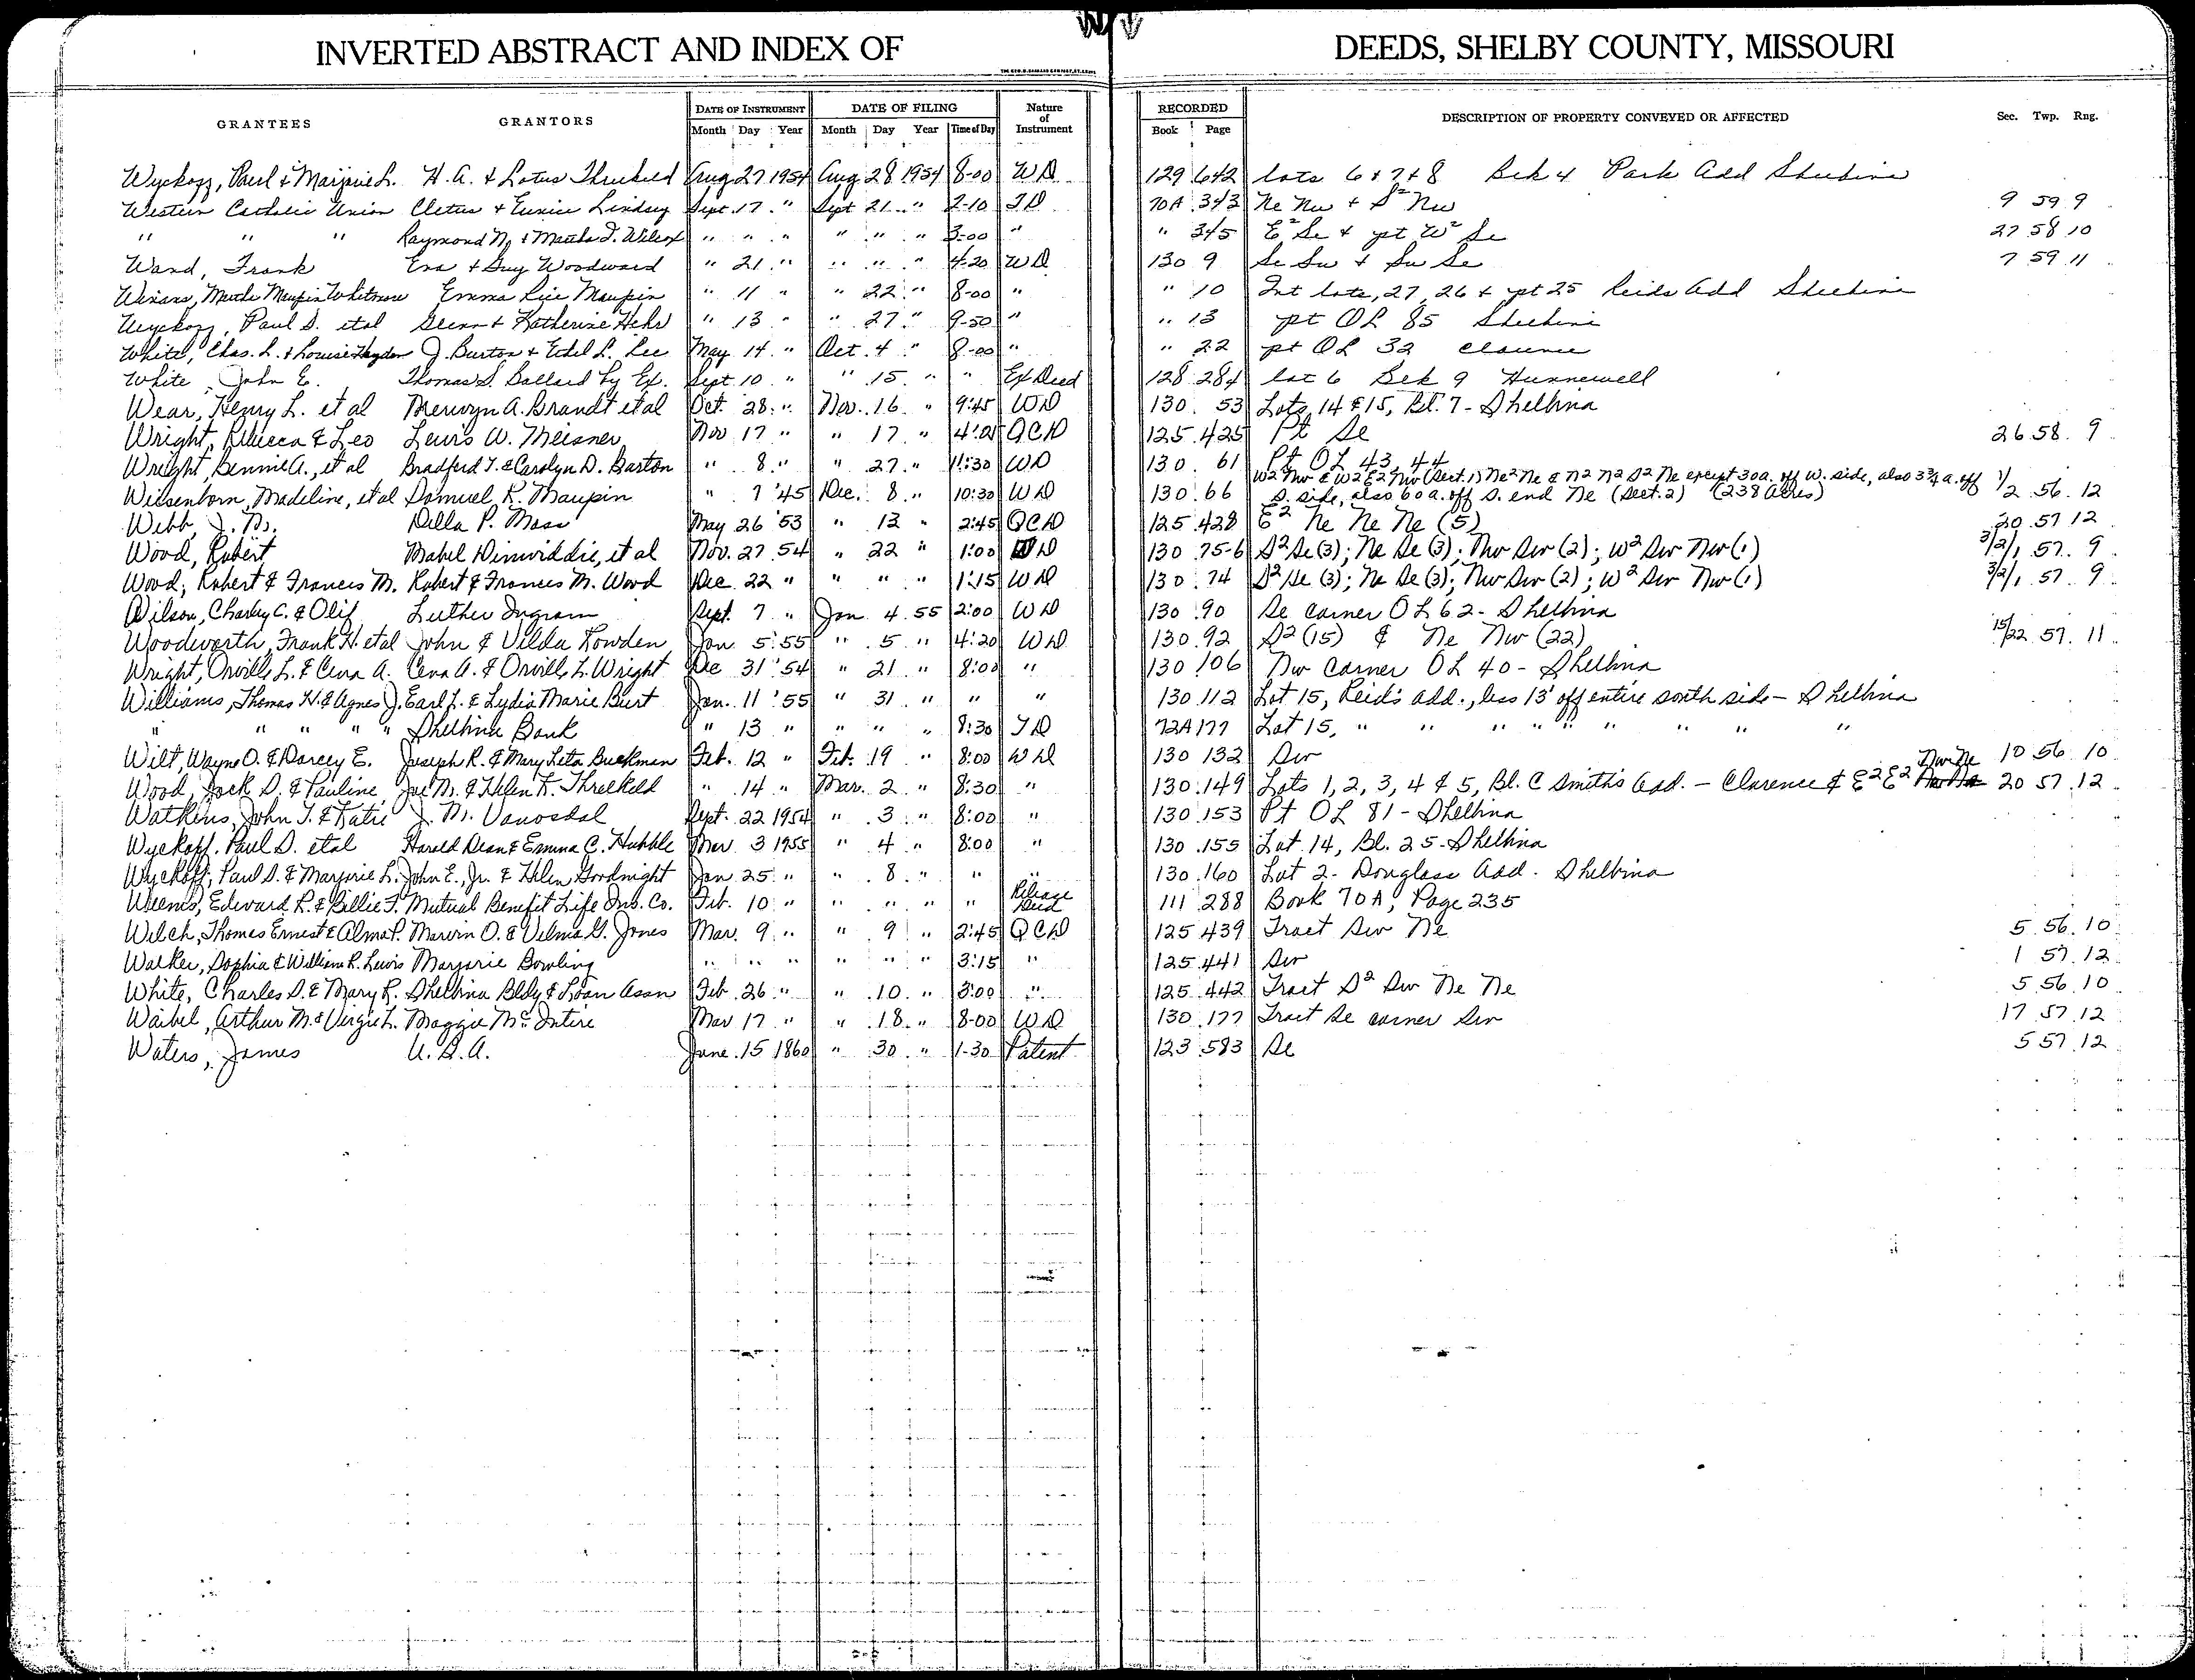 W
INVERTED ABSTRACT AND INDEX OF DEEDS, SHELBY COUNTY, MISSOURI
GRANTEES GRANTORS DATE OF INSTRUMENT Month Day Year DATE OF FILING Month Day Year Time of Day Nature of Instrument RECORDED Book Page DESCRIPTION OF PROPERTY CONVEYED OR AFFECTED Sec. Twp. Rng.
Wyckoff, Paul & Marjorie L. H. A. & Lotus Threlkeld Aug 27 1954 Aug 28 1954 8-00 WD 129 642 Lots 6 & 7 & 8 Blk 4 Park Add Shelbina
Western Catholic Union Cletus & Eunice Lindsey Sept. 17 " Sept 21 " 2-10 TD 70A 343 Ne Nw & S² Nw 9 59 9
" " " Raymond N. & Martha T. Wilcox " " " " " " 3-00 " " 345 E² Se & pt W² Se 27 58 10
Wand, Frank Eva & Guy Woodward " 21 " " " " 4-20 WD 130 9 Se Sw & Sw Se 7 59 11
Winans, Myrtle Maupin Whitmore Emma Lue Maupin " 11 " " 22 " 8-00 " " 10 Int lots, 27, 26 & pt 25 Reids Add Shelbina
Wyckoff, Paul S. etal Glenn & Katherine Hehr " 13 " " 27 " 9-50 " " 13 pt OL 85 Shelbina
White, Chas. L. & Louise Hayden J. Burton & Edel L. Lee May 14 " Oct. 4 " 8-00 " " 22 pt OL 32 Clarence
White, John E. Thomas S. Ballard by Ex. Sept. 10 " " 15 " " Ex Deed 128 284 lot 6 Blk 9 Hunnewell
Wear, Henry L. et al Merwyn A. Brandt et al Oct. 28 " Nov. 16 " 9:45 WD 130 53 Lots 14 & 15, Bl. 7 - Shelbina
Wright, Rebecca & Leo Lewis W. Meisner Nov 17 " " 17 " QCD 125 425 Pt Se 26 58 9
Wright, Bennie A., et al Bradford T. & Carolyn D. Barton " 8 " " 27 " 11:30 WD 130 61 Pt OL 43, 44
W2 Nw & W2 E2 Nw (Sect. 1) Ne² Ne & N2 N2 S2 Ne except 30a. off W. side, also 3¾ a. off
Wilsenborn, Madeline, et al Samuel K. Maupin " 7 '45 Dec. 8 " 10:30 WD 130 66 S. side, also 60 a. off S. end Ne (Sect. 2) (238 Acres) 1/2 56 12
Webb, J. M. Della P. Moss May 26 '53 " 13 " 2:45 QCD 125 428 E² Ne Ne Ne (5) 20 57 12
Wood, Robert Mabel Dinwiddie, et al Nov. 27 54 " 22 " 1:00 WD 130 75-6 S² Se (3); Ne Se (3); Nw Sw (2); W² Sw Nw (1) 3/2/1 57 9
Wood, Robert & Frances M. Robert & Frances M. Wood Dec 22 " " " " 1:15 WD 130 74 S² Se (3); Ne Se (3); Nw Sw (2); W² Sw Nw (1) 3/2/1 57 9
Wilson, Charley C. & Olif Luther Ingram Sept. 7 " Jan 4 55 2:00 WD 130 90 Se corner OL 62 - Shelbina
Woodworth, Frank H. etal John & Velda Lowden Jan 5 '55 " 5 " 4:20 WD 130 92 S² (15) & Ne Nw (22) 15/22 57 11
Wright, Orville L. & Cena A. Cena A. & Orville L. Wright Dec 31 '54 " 21 " 8:00 " 130 106 Nw Corner OL 40 - Shelbina
Williams, Thomas H. & Agnes J. Earl J. & Lydia Marie Burt Jan. 11 '55 " 31 " " " 130 112 Lot 15, Reid's add., less 13' off entire south side - Shelbina
" " " " " Shelbina Bank " 13 " " " " 8:30 TD 72A 177 Lot 15, " " " " " " " " "
Wilt, Wayne O. & Darcey E. Joseph R. & Mary Leta Buckman Feb. 12 " Feb. 19 " 8:00 WD 130 132 Sw 10 56 10
Wood, Jack D. & Pauline Joe M. & Helen K. Threlkeld " 14 " Mar. 2 " 8:30 " 130 149 Lots 1, 2, 3, 4 & 5, Bl. C Smith's Add. - Clarence & E² E² Nw Ne 20 57 12
Watkins, John T. & Katie J. M. Vanosdal Sept. 22 1954 " 3 " 8:00 " 130 153 Pt OL 81 - Shelbina
Wyckoff, Paul S. etal Harold Dean & Emma C. Hubble Mar 3 1955 " 4 " 8:00 " 130 155 Lot 14, Bl. 25 - Shelbina
Wyckoff, Paul S. & Marjorie L. John E., Jr. & Helen Goodnight Jan 25 " " 8 " " " 130 160 Lot 2 - Douglass Add. - Shelbina
Weems, Edward R. & Billie J. Mutual Benefit Life Ins. Co. Feb. 10 " " " " " Release Deed 111 288 Book 70A, Page 235
Welch, Thomas Ernest & Alma P. Marvin O. & Velma G. Jones Mar. 9 " " 9 " 2:45 QCD 125 439 Tract Sw Ne 5 56 10
Walker, Sophia & William R. Lewis Marjorie Bowling " " " " " " 3:15 " 125 441 Sw 1 57 12
White, Charles D. & Mary R. Shelbina Bldg & Loan Assn Feb 26 " " 10 " 3:00 " 125 442 Tract S² Sw Ne Ne 5 56 10
Waibel, Arthur M. & Vergie L. Maggie McIntire Mar 17 " " 18 " 8-00 WD 130 177 Tract Se corner Sw 17 57 12
Waters, James U.S.A. June 15 1860 " 30 " 1-30 Patent 123 583 Se 5 57 12